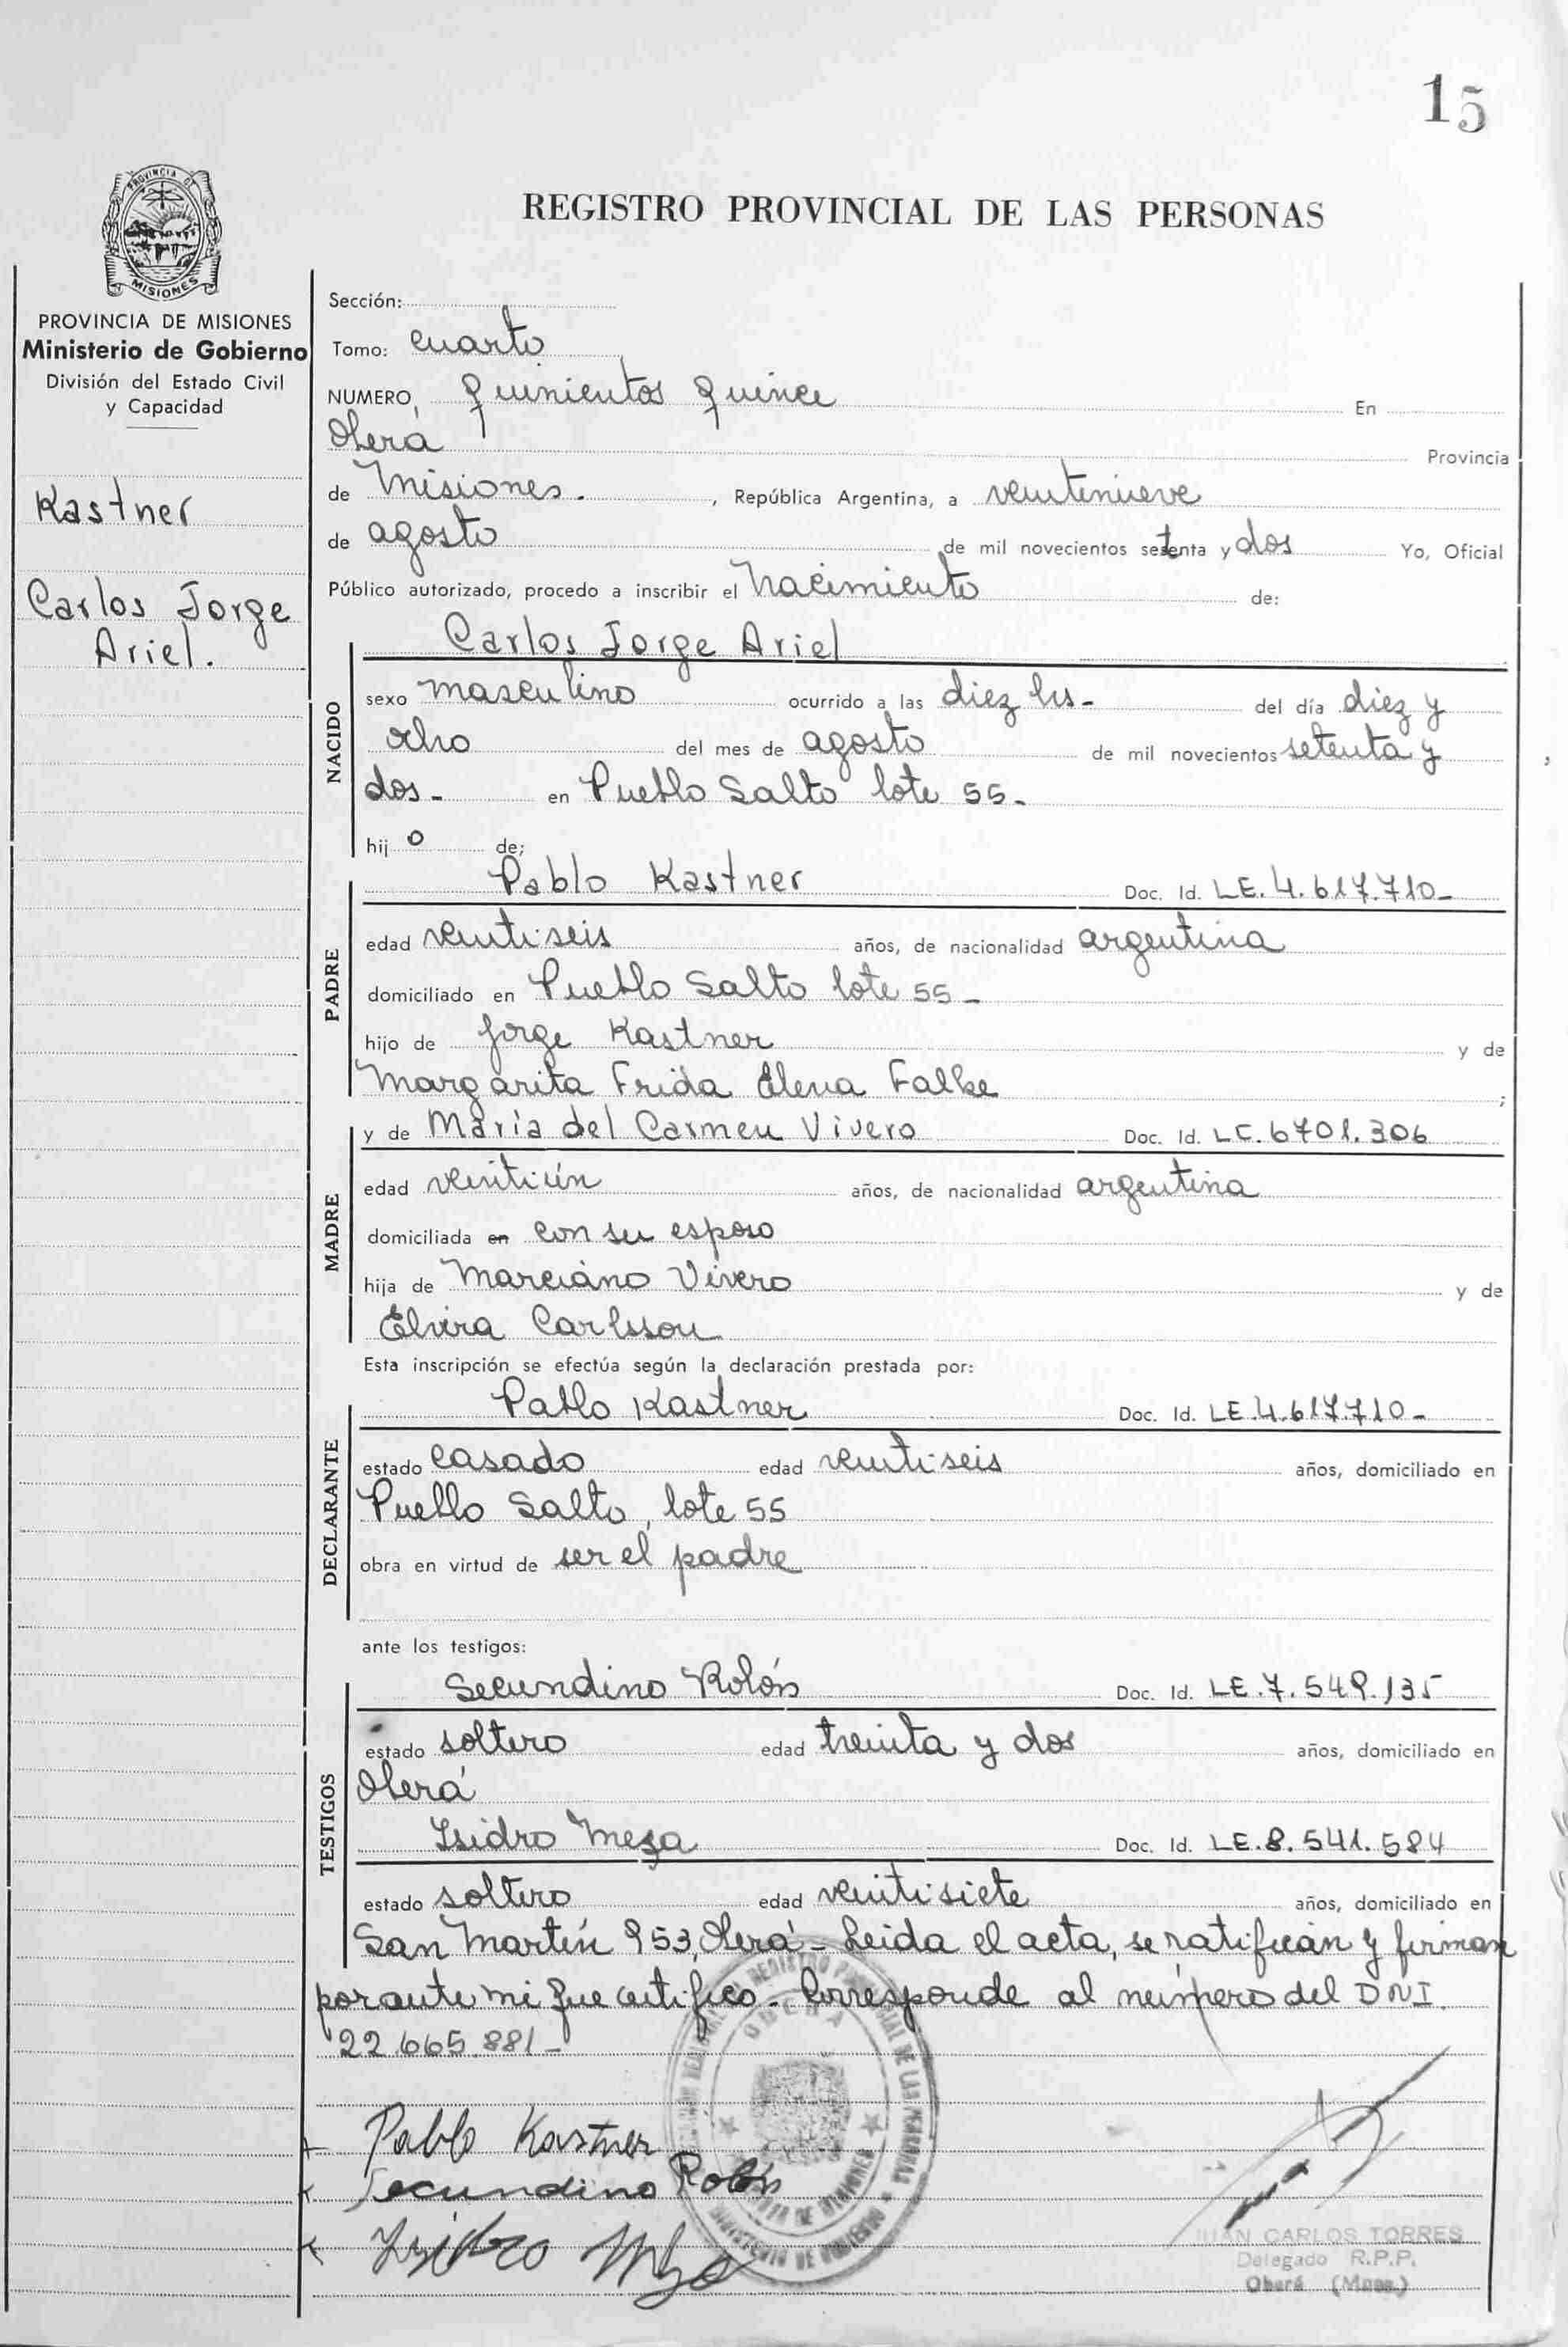 15
REGISTRO PROVINCIAL DE LAS PERSONAS
MISIONES
PROVINCIA DE MISIONES
Ministerio de Gobierno
División del Estado Civil
y Capacidad
Kastner
Carlos Jorge
Ariel.
Sección:
Tomo: cuarto
NUMERO, quinientos quince En
Oberá Provincia
de Misiones. , República Argentina, a veintenueve
de agosto de mil novecientos setenta y dos Yo, Oficial
Público autorizado, procedo a inscribir el nacimiento de:
Carlos Jorge Ariel
NACIDO
sexo masculino ocurrido a las diez hs- del día diez y
ocho del mes de agosto de mil novecientos setenta y
dos- en Pueblo Salto lote 55-
hij o de;
Pablo Kastner Doc. Id. LE. 4.617.710-
PADRE
edad veinti seis años, de nacionalidad argentina
domiciliado en Pueblo Salto lote 55-
hijo de Jorge Kastner y de
Margarita Frida Elena Falke ;
y de María del Carmen Vivero Doc. Id. LC. 6701.306
MADRE
edad veintiún años, de nacionalidad argentina
domiciliada en con su esposo
hija de Marciano Vivero y de
Elvira Carlsson
Esta inscripción se efectúa según la declaración prestada por:
Pablo Kastner Doc. Id. LE.4.617.710-
DECLARANTE
estado casado edad veinti seis años, domiciliado en
Pueblo Salto, lote 55
obra en virtud de ser el padre
ante los testigos:
Secundino Rolón Doc. Id. LE.7.549.135
TESTIGOS
estado soltero edad treinta y dos años, domiciliado en
Oberá
Isidro Meza Doc. Id. LE.8.541.584
estado soltero edad veinti siete años, domiciliado en
San Martín 953, Oberá- Leida el acta, se ratifican y firman
por ante mi que certifico- Corresponde al número del DNI.
22.665.881-
OBERA
Pablo Kastner
Secundino Rolón
Isidro Meza
JUAN CARLOS TORRES
Delegado R.P.P.
Oberá (Mnes.)